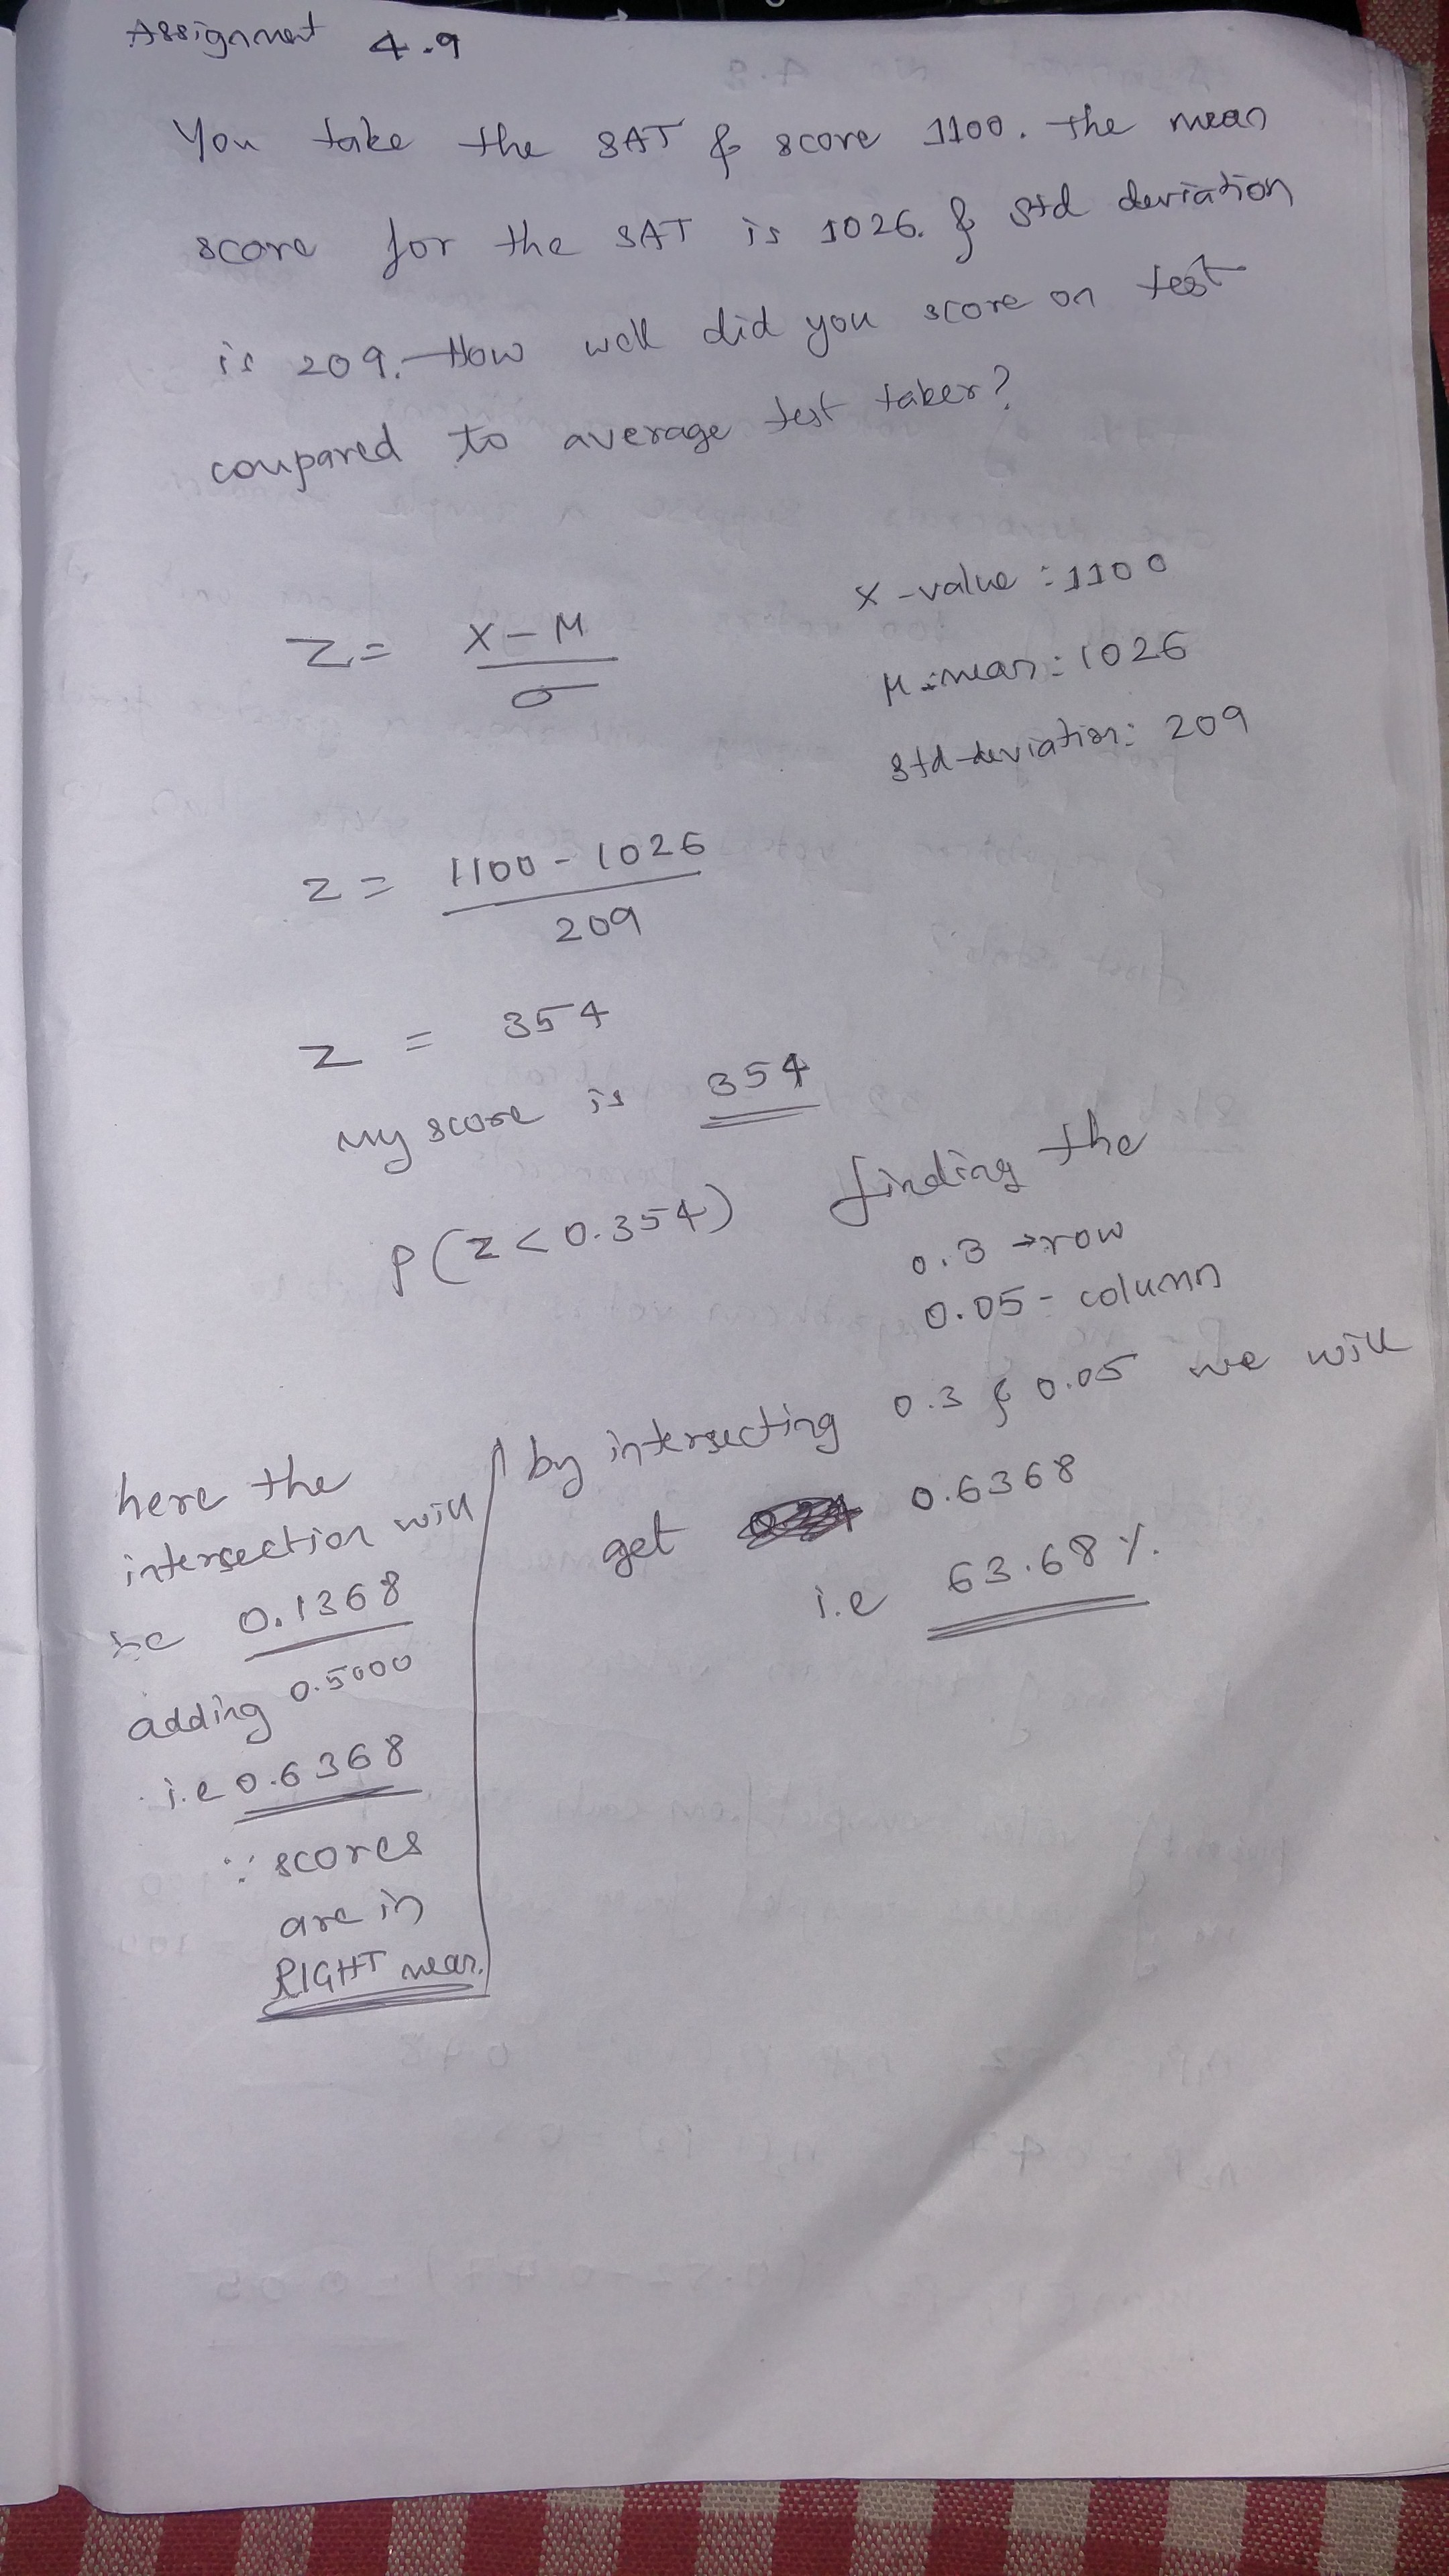 Assignment 4.9
You take the SAT & score 1100. The mean
score for the SAT is 1026. & std deviation
is 209. How well did you score on test
compared to average test taker?
Z = X - M / σ
X - value : 1100
M : mean : 1026
std-deviation : 209
Z = 1100 - 1026 / 209
Z = 354
my score is 354
P(Z < 0.354) finding the
0.3 → row
0.05 - column
by intersecting 0.3 & 0.05 we will
get 0.6368
i.e 63.68 %.
here the
intersection will
be 0.1368
adding 0.5000
i.e 0.6368
∵ scores
are in
RIGHT mean.